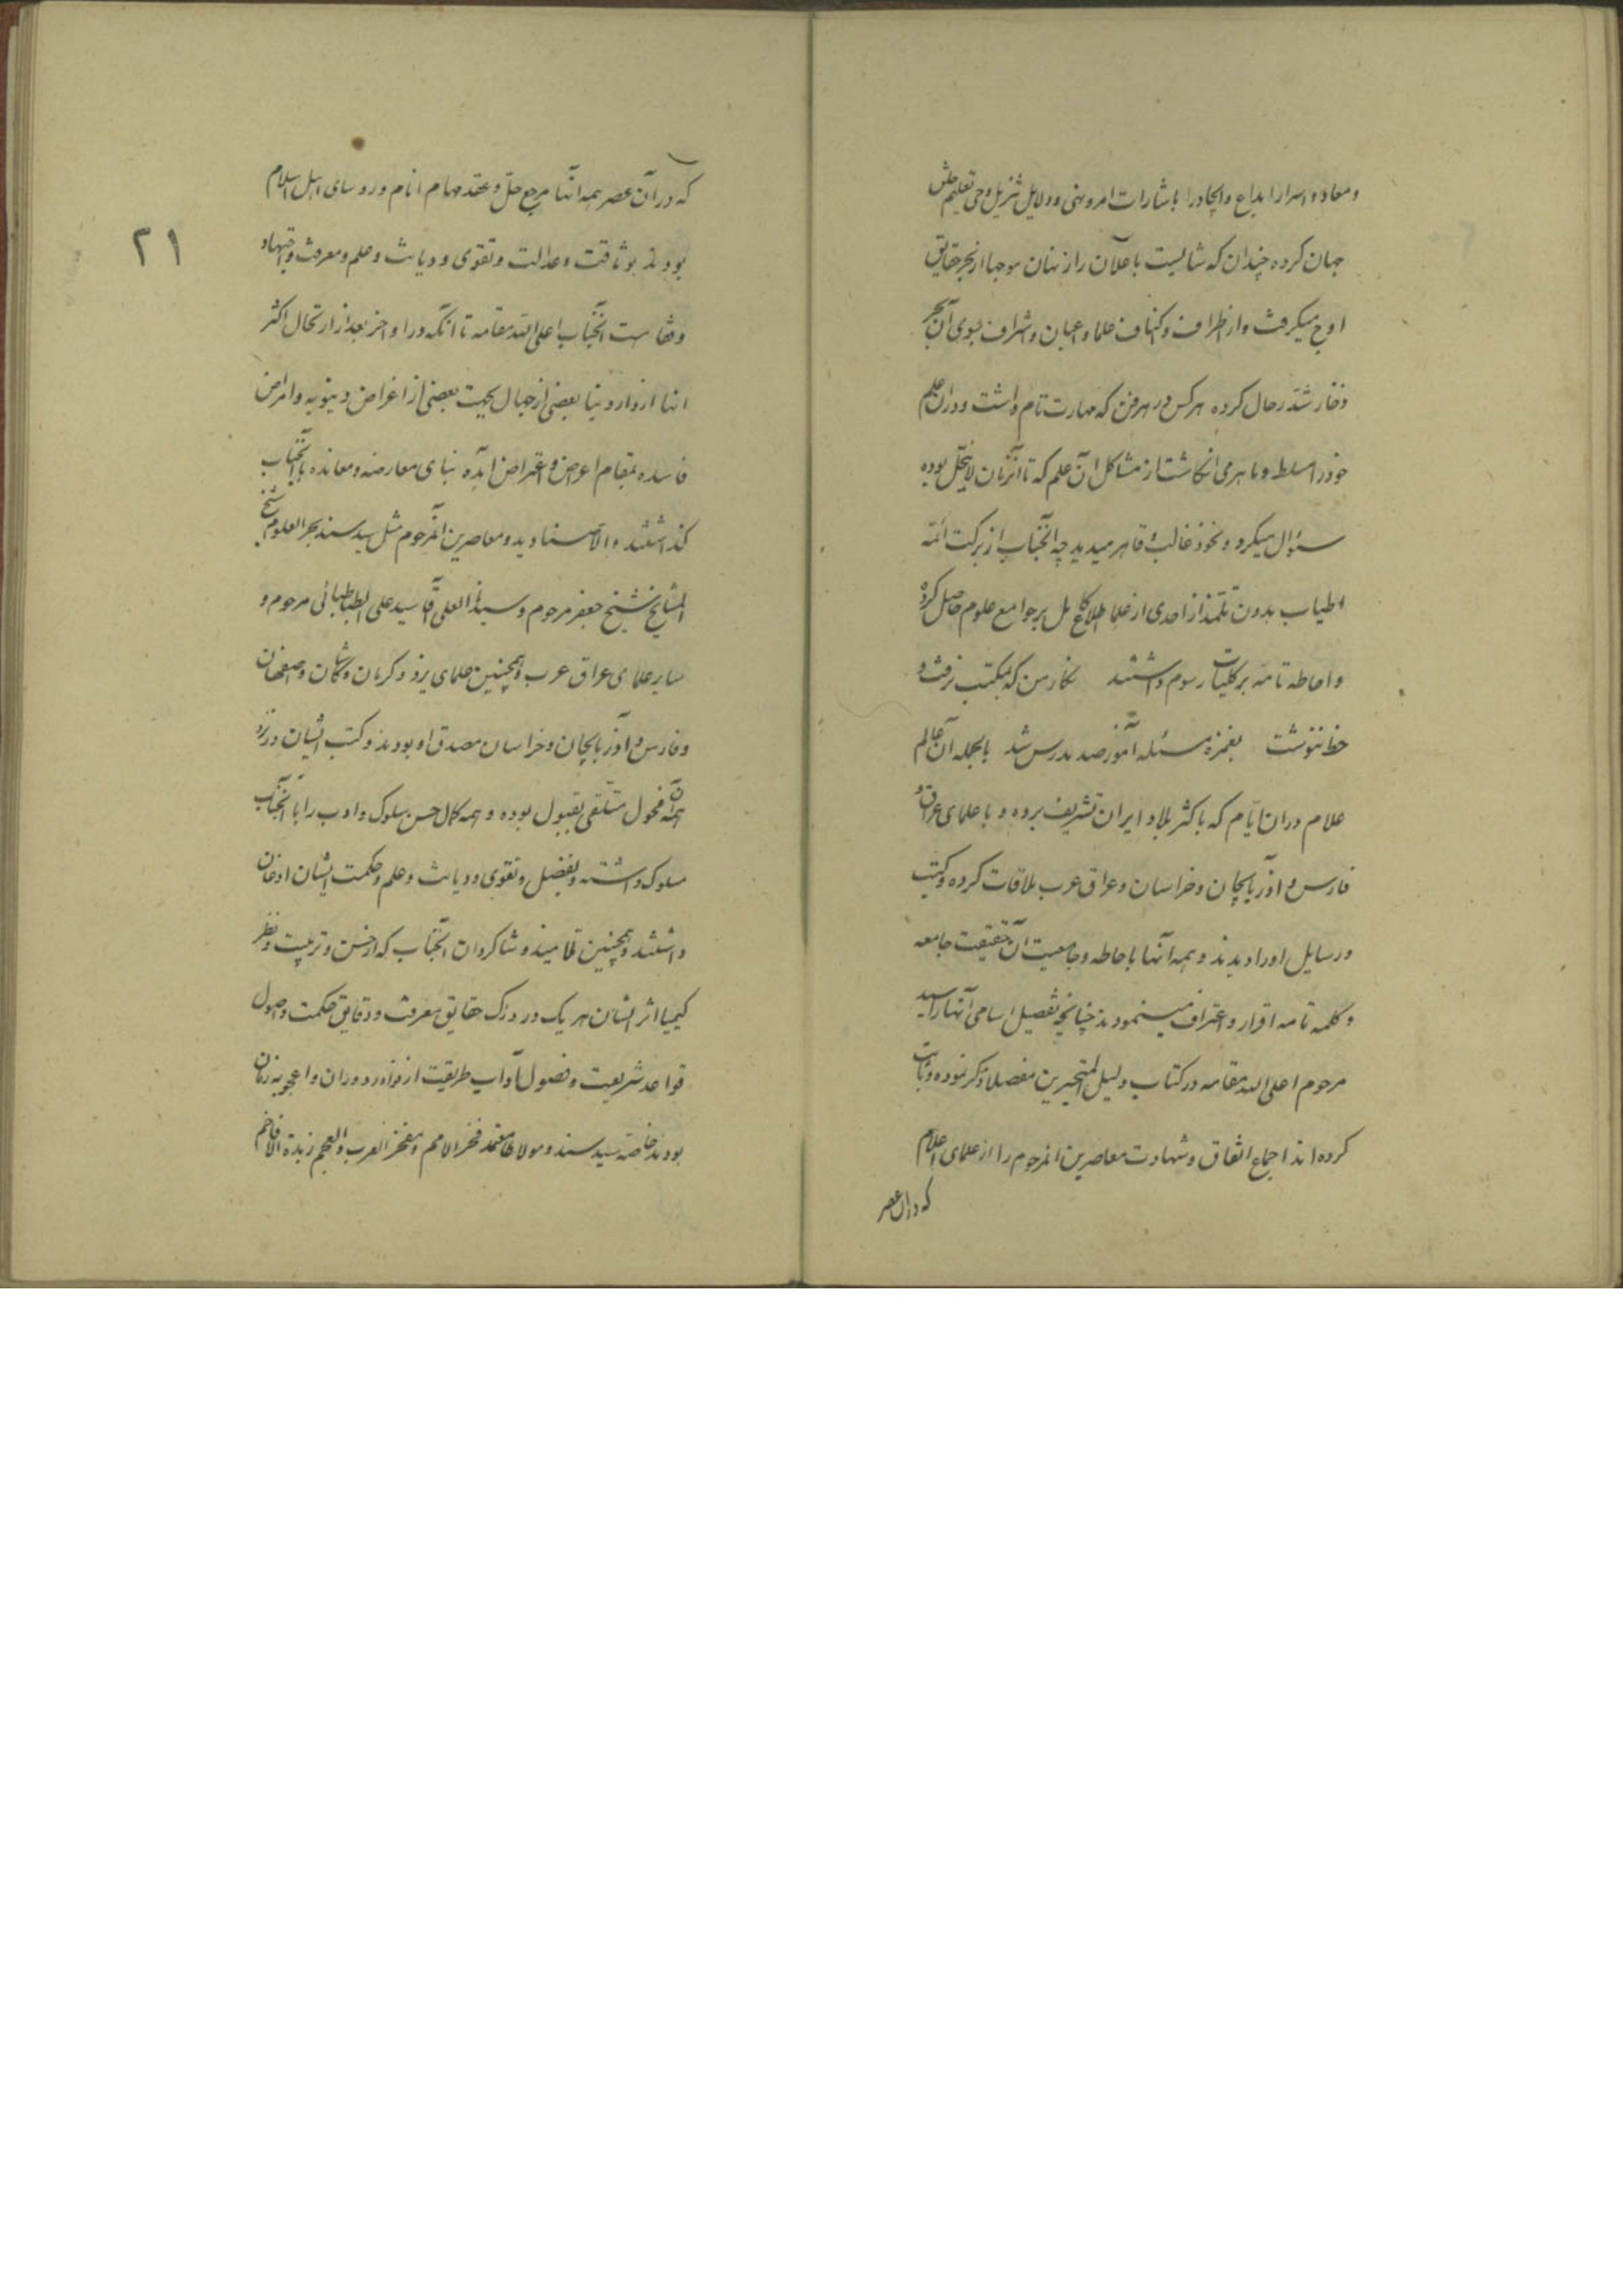 و معاد و اسرار ابداع و ایجاد را باشارات امر و نهی و دلایل تنزیل و وحی تعلیم خلق
جهان کرده چندان که شایست باعلان راز نهان موجها از بحر حقایق
اوج میگرفت و از اطراف و اکناف علما و اعیان و اشراف بسوی آن بحر
ذخار شدّ رحال کرده هر کس در هر فن که مهارت تام داشت و در آن علم
خود را مسلط و ماهر می انکاشت از مشاکل آن علم که تا آنزمان لاینحل بوده
سئوال میکرد و بخود غالب و قاهر میدید چه آنجناب از برکت ائمّه
اطیاب بدون تلمّذ از احدی از علما اطلاع کامل بر جوامع علوم حاصل کرده
و احاطه تامّه بر کلیات رسوم داشتند نکار من که بمکتب نرفت و
خط ننوشت بغمزه مسئله آموز صد مدرس شد بالجمله آن عالم
علام در ان ایّام که باکثر بلاد ایران تشریف برده و با علمای عراق و
فارس و آذربایجان و خراسان و عراق عرب ملاقات کرده و کتب
و رسایل او را دیدند و همه آنها باحاطه و جامعیت آن حقیقت جامعه
و کلمه تامه اقرار و اعتراف مینمودند چنانچه تفصیل اسامی آنها را سید
مرحوم اعلی الله مقامه در کتاب دلیل المتحیرین مفصلا ذکر نموده و اثبات
کرده اند اجماع اتفاق و شهادت معاصرین انمرحوم را از علمای اعلام
که در ان عصر
که در آن عصر همه آنها مرجع حلّ و عقد مهام انام و روسای اهل اسلام
۲۱
بودند بوثاقت و عدالت و تقوی و دیانت و علم و معرفت و اجتهاد
و فقاهت آنجناب اعلی الله مقامه تا آنکه در اواخر بعد از ارتحال اکثر
آنها از دار دنیا بعضی از جهال بجهت بعضی از اغراض دنیویه و امراض
فاسده بمقام اعراض و اعتراض آمده بنای معارضه و معانده با آنجناب
کذاشتند و الا صنادید و معاصرین آنمرحوم مثل سید سند بحر العلوم و شیخ
المشایخ شیخ جعفر مرحوم و سیدنا العلی آقا سید علی الطباطبائی مرحوم و
سایر علمای عراق عرب و همچنین علمای یزد و کرمان و کاشان و اصفهان
و فارس و آذربایجان و خراسان مصدق او بودند و کتب ایشان در نزد
همه آن فحول متلقی بقبول بوده و همه کمال حسن سلوک و ادب را با آنجناب
مسلوک داشته و بفضل و تقوی و دیانت و علم و حکمت ایشان اذعان
داشتند و همچنین تلامیذ و شاکردان آنجناب که از حسن تربیت و نظر
کیمیا اثر ایشان هر یک در درک حقایق معرفت و دقایق حکمت و اصول
قواعد شریعت و فصول آداب طریقت از نوادر دوران و اعجوبه زمان
بودند خاصّه سید سند و مولانا معتمد فخر الامم و مفخر العرب و العجم زبدة الافاخم